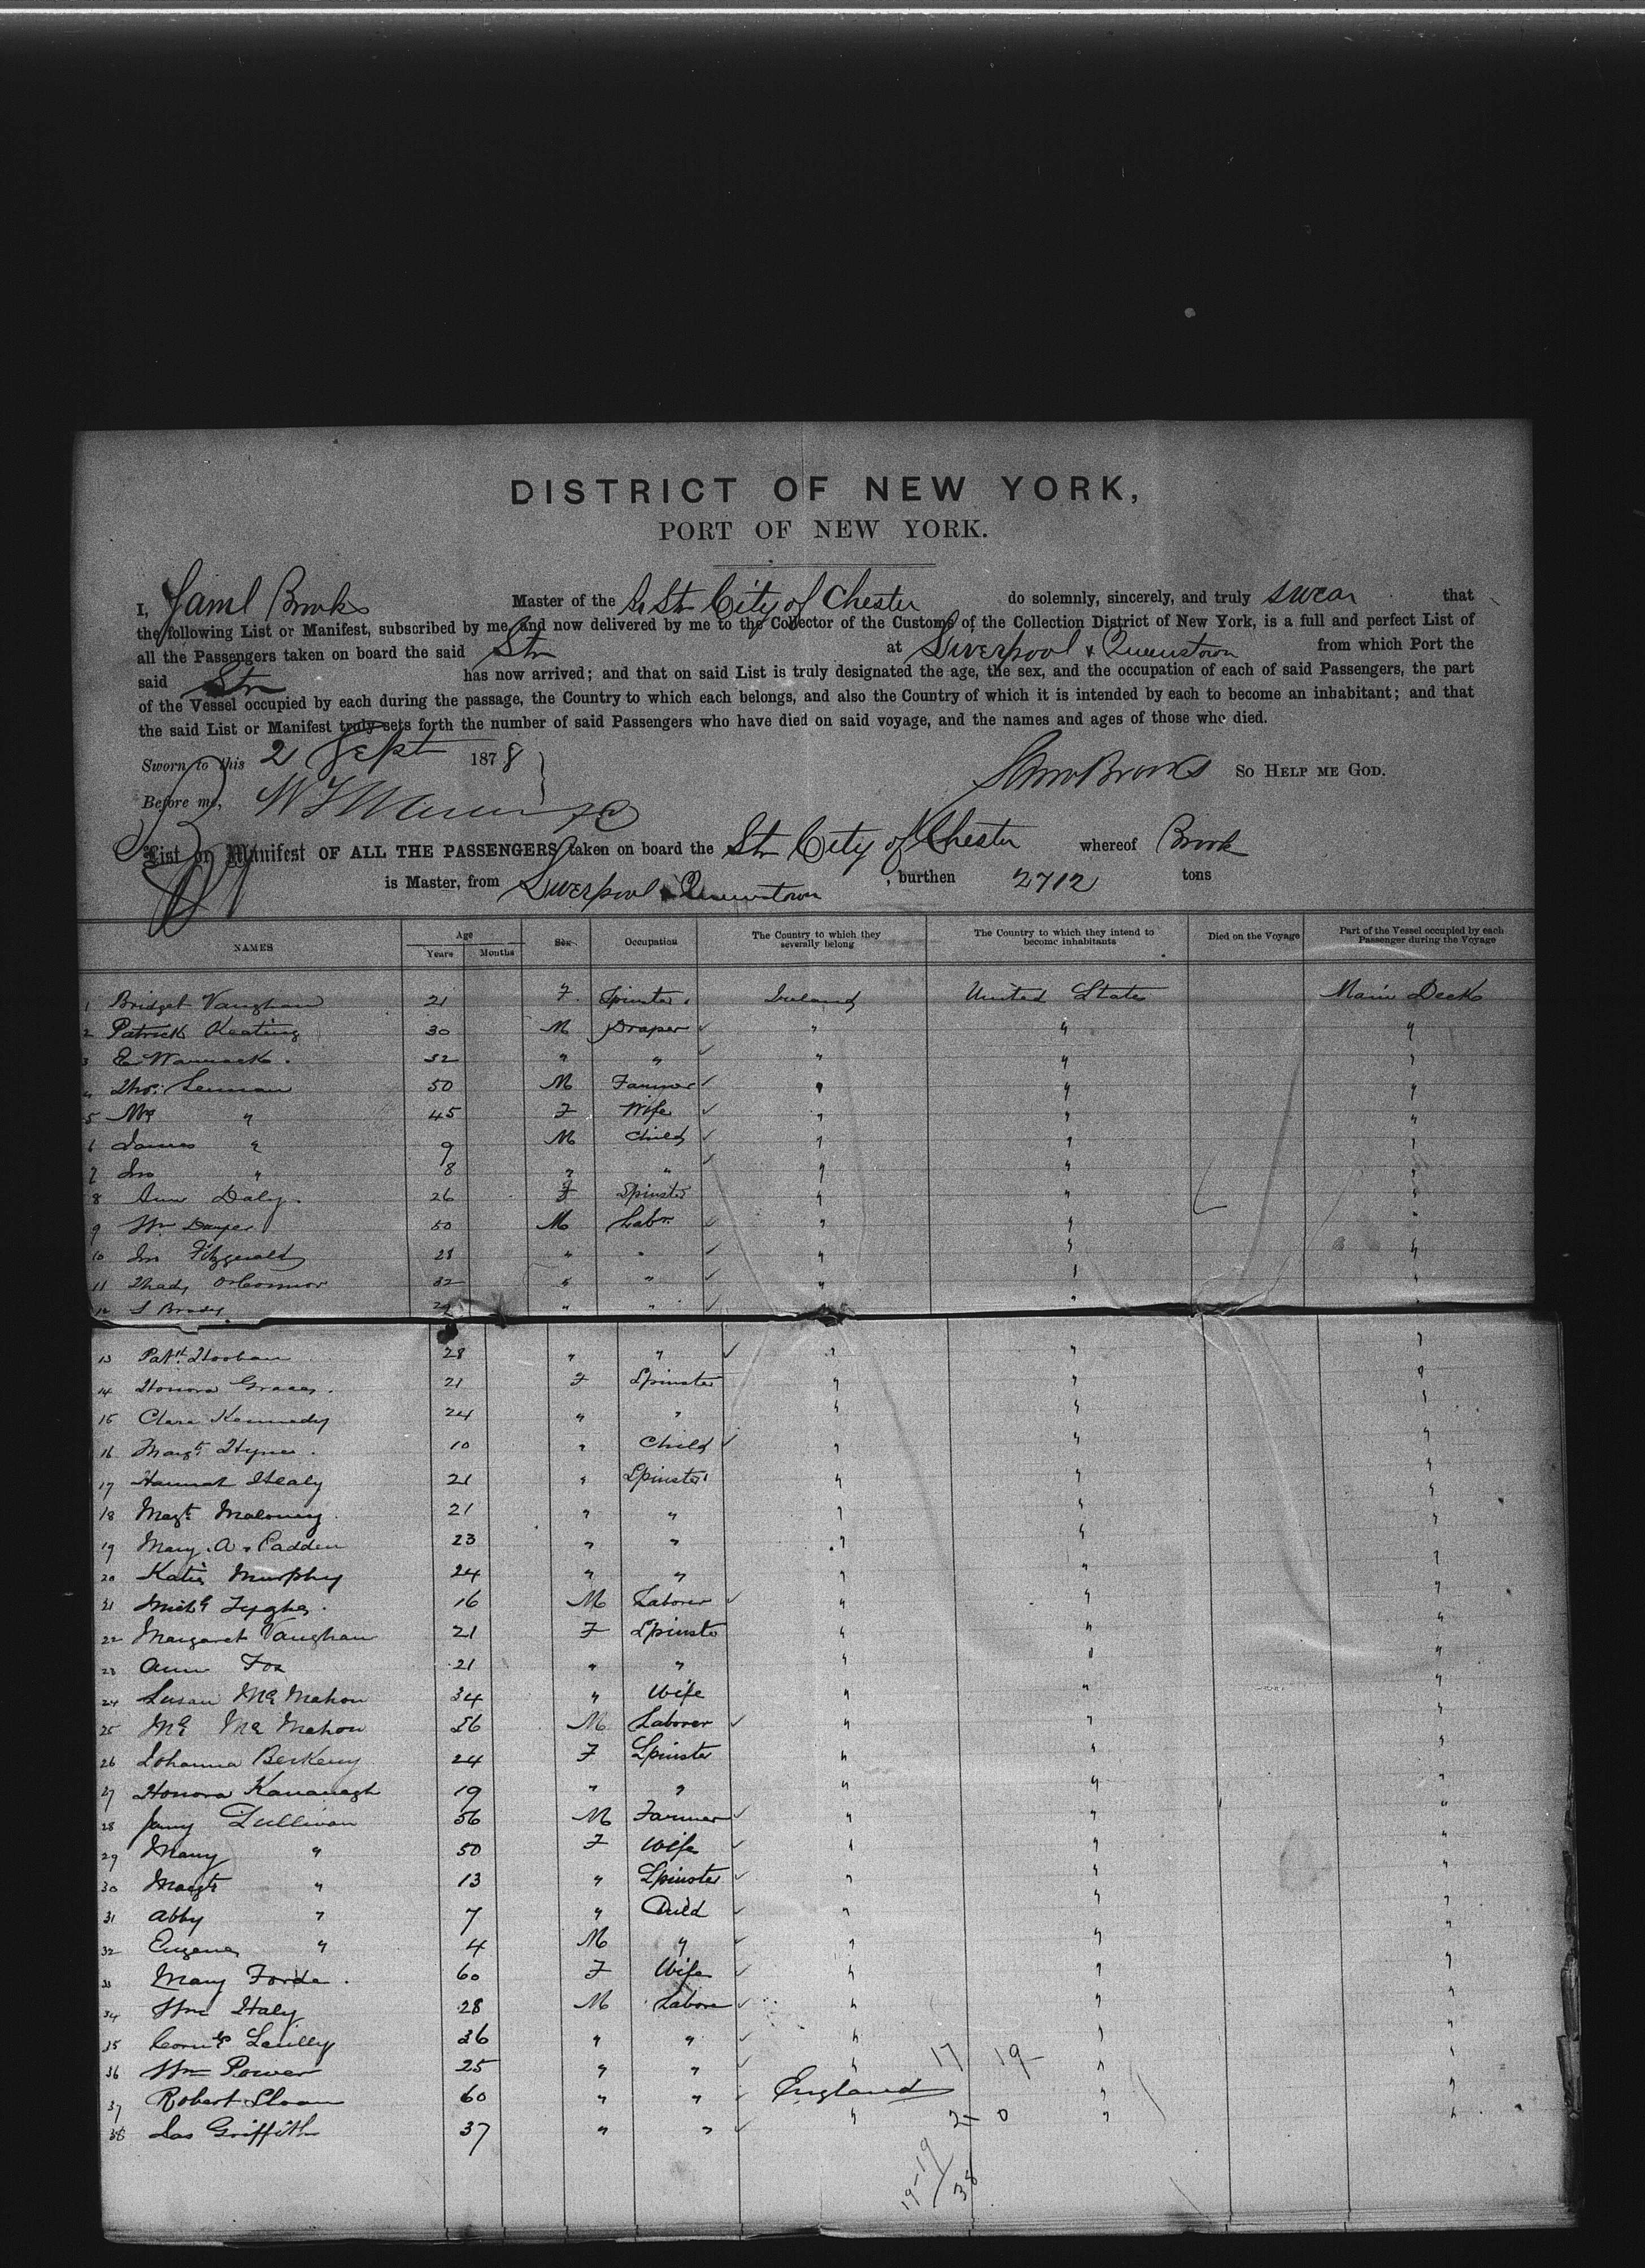 DISTRICT OF NEW YORK,
PORT OF NEW YORK.
I, Saml Brooks Master of the S. Str City of Chester do solemnly, sincerely, and truly swear that
the following List or Manifest, subscribed by me and now delivered by me to the Collector of the Customs of the Collection District of New York, is a full and perfect List of
all the Passengers taken on board the said Str at Liverpool & Queenstown from which Port the
said Str has now arrived; and that on said List is truly designated the age, the sex, and the occupation of each of said Passengers, the part
of the Vessel occupied by each during the passage, the Country to which each belongs, and also the Country of which it is intended by each to become an inhabitant; and that
the said List or Manifest truly sets forth the number of said Passengers who have died on said voyage, and the names and ages of those who died.
Sworn to this 21 Sept 1878
Saml Brooks SO HELP ME GOD.
Before me,
List or Manifest OF ALL THE PASSENGERS taken on board the Str City of Chester whereof Brook
is Master, from Liverpool & Queenstown, burthen 2712 tons
NAMES Age Years Months Sex Occupation The Country to which they severally belong The Country to which they intend to become inhabitants Died on the Voyage Part of the Vessel occupied by each Passenger during the Voyage
1 Bridget Vaughan 21 F Spinster Ireland United States Main Deck
2 Patrick Keating 30 M Draper " " "
3 E Warnack 32 " " " " "
4 Thos. Lennan 50 M Farmer " " "
5 Mrs " 45 F Wife " " "
6 James " 9 M Child " " "
7 Jno " 8 " " " " "
8 Ann Daly 26 F Spinster " " "
9 Wm Dwyer 50 M Labr. " " "
10 Jno Fitzgerald 28 " " " " "
11 Thady O'Connor 32 " " " " "
12 S Brady 24 " " " " "
13 Patk Hoolan 28 " " " " "
14 Honora Graces 21 F Spinster " " "
15 Clara Kennedy 24 " " " " "
16 Margt Hynes 10 " Child " " "
17 Hannah Healy 21 " Spinster " " "
18 Magt Maloney 21 " " " " "
19 Mary A. Cadden 23 " " " " "
20 Katie Murphy 24 " " " " "
21 Michl Tyghe 16 M Laborer " " "
22 Margaret Vaughan 21 F Spinste " " "
23 Ann Fox 21 " " " " "
24 Susan McMahon 34 " Wife " " "
25 Ml McMahon 56 M Laborer " " "
26 Johanna Berkery 24 F Spinster " " "
27 Honora Kavanagh 19 " " " " "
28 Jamy Sullivan 56 M Farmer " " "
29 Mary " 50 F Wife " " "
30 Margt " 13 " Spinster " " "
31 Abby " 7 " Child " " "
32 Eugene " 4 M " " " "
33 Mary Forde 60 F Wife " " "
34 Wm Haly 28 M Labore " " "
35 Corns Scully 36 " " " " "
36 Wm Power 25 " " " " "
17 19
37 Robert Sloan 60 " " England " "
38 Jas Griffith 37 " " " " "
2 0
19-19
38